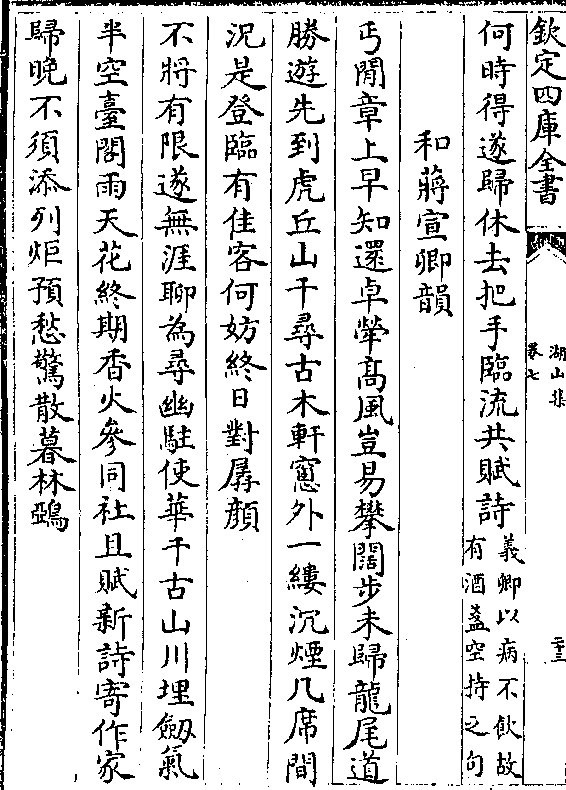 欽定四庫全書
湖山集
卷七
二十三
何時得遂歸休去把手臨流共賦詩
義卿以病不飲故
有酒盞空持之句
和蔣宣卿韻
丐閒章上早知還卓犖高風豈易攀闊步未歸龍尾道
勝遊先到虎丘山千尋古木軒窻外一縷沉煙几席間
況是登臨有佳客何妨終日對孱顔
不將有限遂無涯聊為尋幽駐使華千古山川埋劒氣
半空臺閣雨天花終期香火參同社且賦新詩寄作家
歸晚不須添列炬預愁驚散暮林鵶